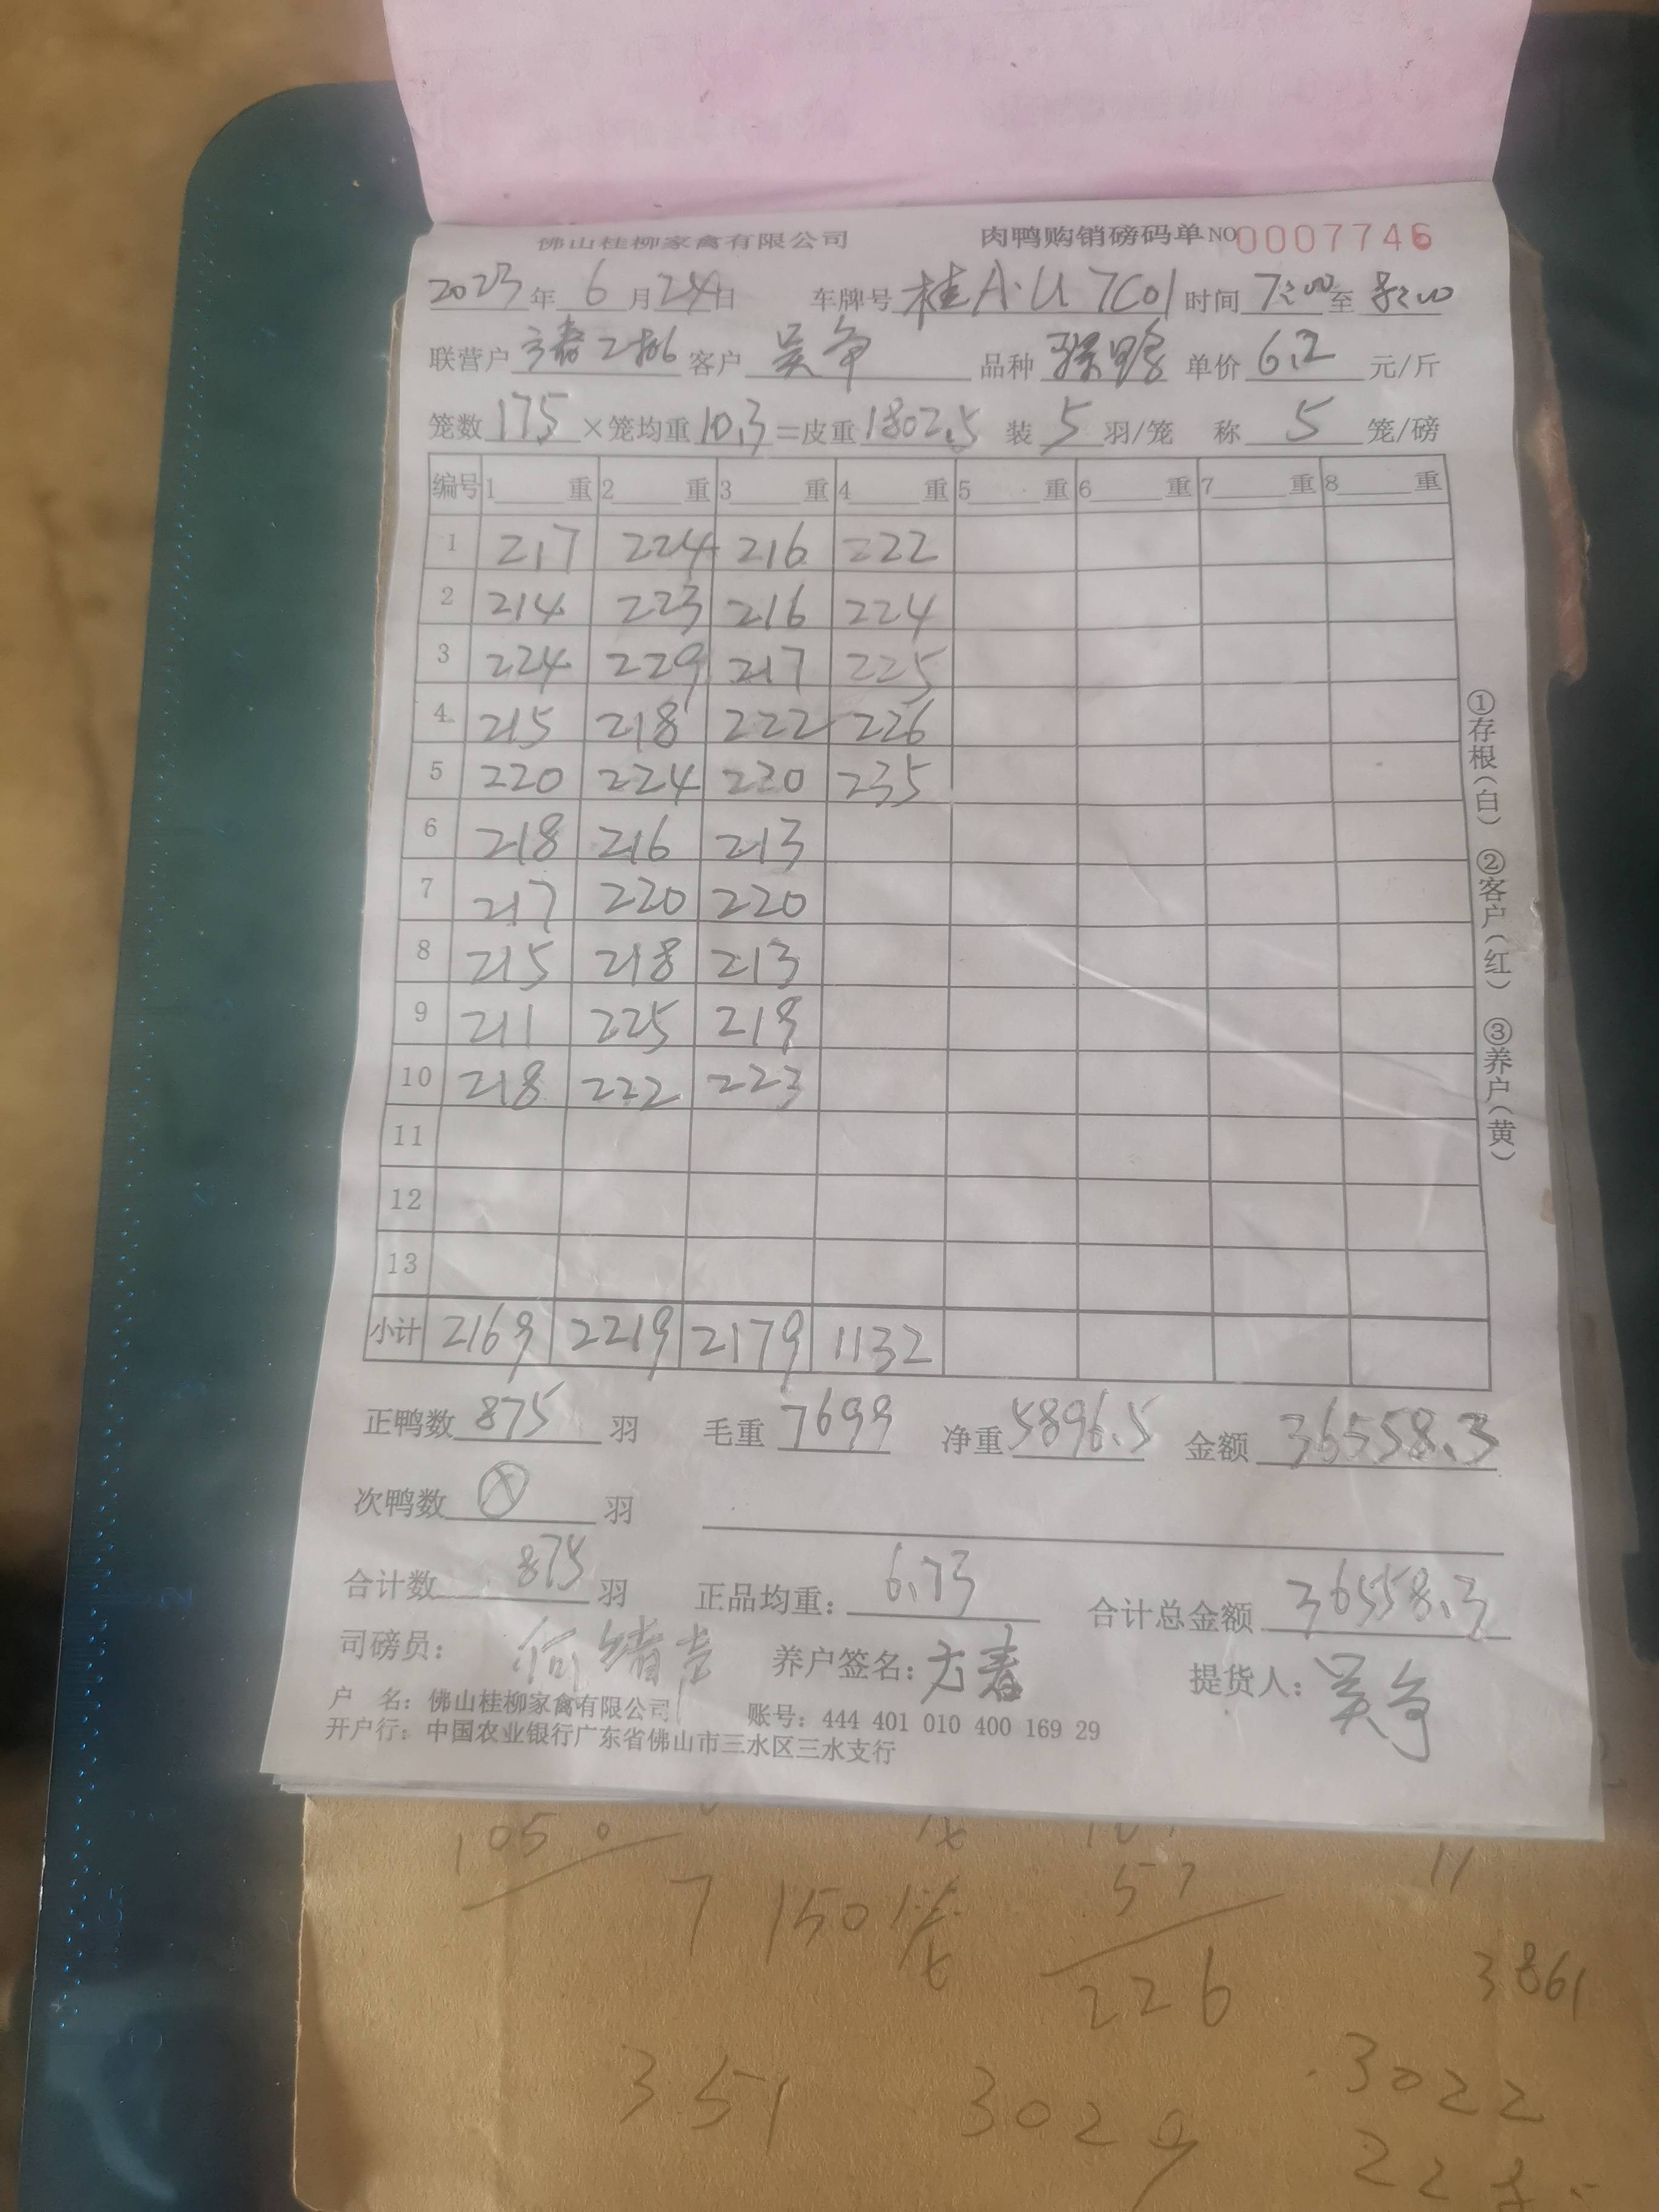 佛山桂柳家禽有限公司 肉鸭购销磅码单 NO 0007746
2023年 6月24日 车牌号 桂A·U7C01 时间 7:00至 8:00
联营户 客户 吴争 品种 单价 6.2 元/斤
笼数 175 ×笼均重 10.3 =皮重 1802.5 装 5 羽/笼 称 5 笼/磅
编号 1 重 2 重 3 重 4 重 5 重 6 重 7 重 8 重
1 217 224 216 222
2 214 223 216 224
3 224 229 217 225
4 215 218 222 226
5 220 224 220 235
6 218 216 213
7 217 220 220
8 215 218 213
9 211 225 219
10 218 222 223
11
12
13
小计 2169 2219 2179 1132
正鸭数 875 羽 毛重 7699 净重 5896.5 金额 36558.3
次鸭数 羽
合计数 875 羽 正品均重: 6.73 合计总金额 36558.3
司磅员: 何绪吉 养户签名: 方春 提货人: 吴争
户 名: 佛山桂柳家禽有限公司 账号: 444 401 010 400 169 29
开户行: 中国农业银行广东省佛山市三水区三水支行
①存根(白) ②客户(红) ③养户(黄)
1050
7 150
57
11
226
3861
351 3029 3022